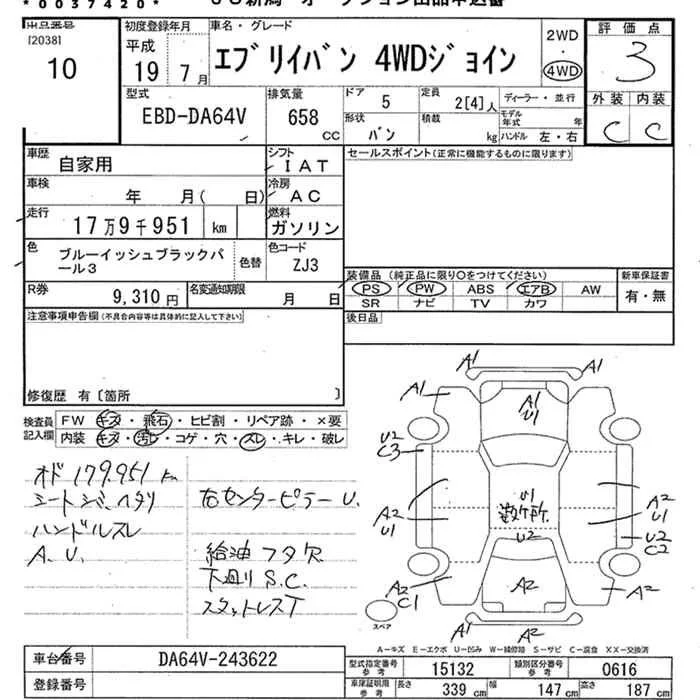 *0037420*
出品番号
120381
10
初度登録年月
平成
19年7月
車名・グレード
エブリイバン 4WDジョイン
2WD
・
4WD
評価点
3
外装 内装
C C
型式
EBD-DA64V
排気量
658
CC
ドア
5
形状
バン
定員
2[4]人
積載
kg
ディーラー・並行
モデル年式 年
ハンドル 左・右
車歴
自家用
シフト
IAT
車検
年 月( 日)
冷房
AC
走行
17万9千951 km
燃料
ガソリン
色
ブルーイッシュブラックパール3
色替
色コード
ZJ3
R券
9,310円
名変通知期限
月 日
セールスポイント(正常に機能するものに限ります)
装備品(純正品に限り○をつけてください)
PS PW ABS エアB AW
SR ナビ TV カワ
新車保証書
有・無
後日品
注意事項申告欄(不具合内容等は具体的に記入して下さい)
修復歴 有〔箇所 〕
検査員
記入欄
FW キズ・飛石・ヒビ割・リペア跡・×要
内装 キズ・汚レ・コゲ・穴・スレ・キレ・破レ
オド 179.951 km
シートシバ、ヘタリ
ハンドルスレ
A、U、
右センターピラーU、
給油フタ欠
下廻りS.C.
スタットレスT
A1 A1
A1 A1 A1
U1
U2
C3
A2
U1
U1
数ヶ所
U2
A2
U1
U2
C2
A2
C1
A2
A2
A2 A2
スペア
A-キズ E-エクボ U-凹み W-補修箇 S-サビ C-腐食 XX-交換済
車台番号
DA64V-243622
登録番号
型式指定番号
参考
15132
類別区分番号
参考
0616
車庫証明用
参考
長さ 339 cm
幅 147 cm
高さ 187 cm